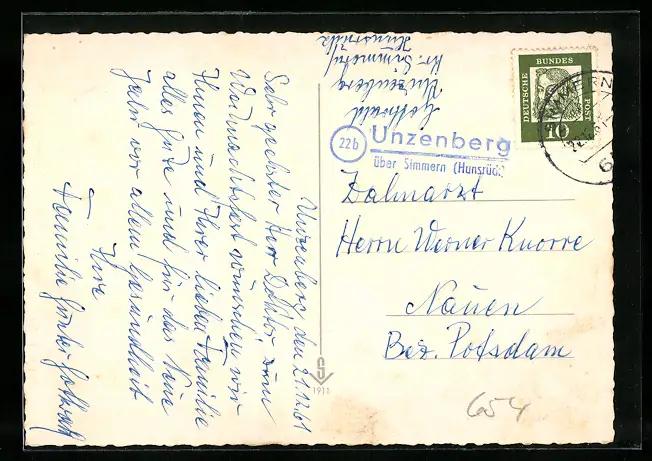 Unzenberg, den 21.12.61
Sehr geehrter Herr Doktor, zum
Weihnachtsfest wünschen wir
Ihnen und Ihrer lieben Familie
alles Gute und für das Neue
Jahr vor allem Gesundheit
Ihre
Familie Günter Gotthardt
Unzenberg
Kr. Simmern/
Hunsrück
DEUTSCHE
BUNDES
POST
10
SIMMERN
22b
Unzenberg
über Simmern (Hunsrück)
Zahnarzt
Herrn Werner Knorre
Nauen
Bez. Potsdam
S
1911
654